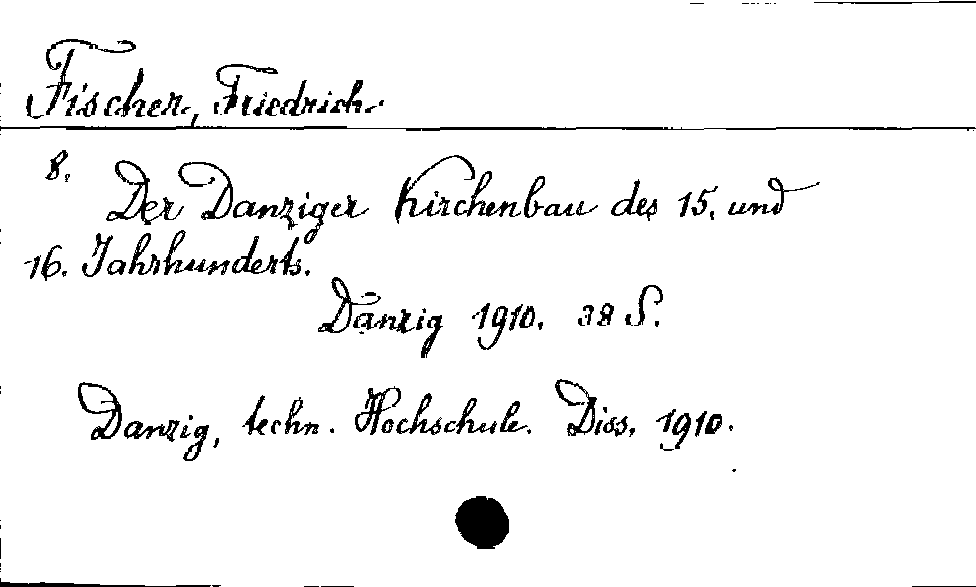 Fischer, Friedrich.
8.
Der Danziger Kirchenbau des 15. und
16. Jahrhunderts.
Danzig 1910. 38 S.
Danzig, techn. Hochschule. Diss. 1910.